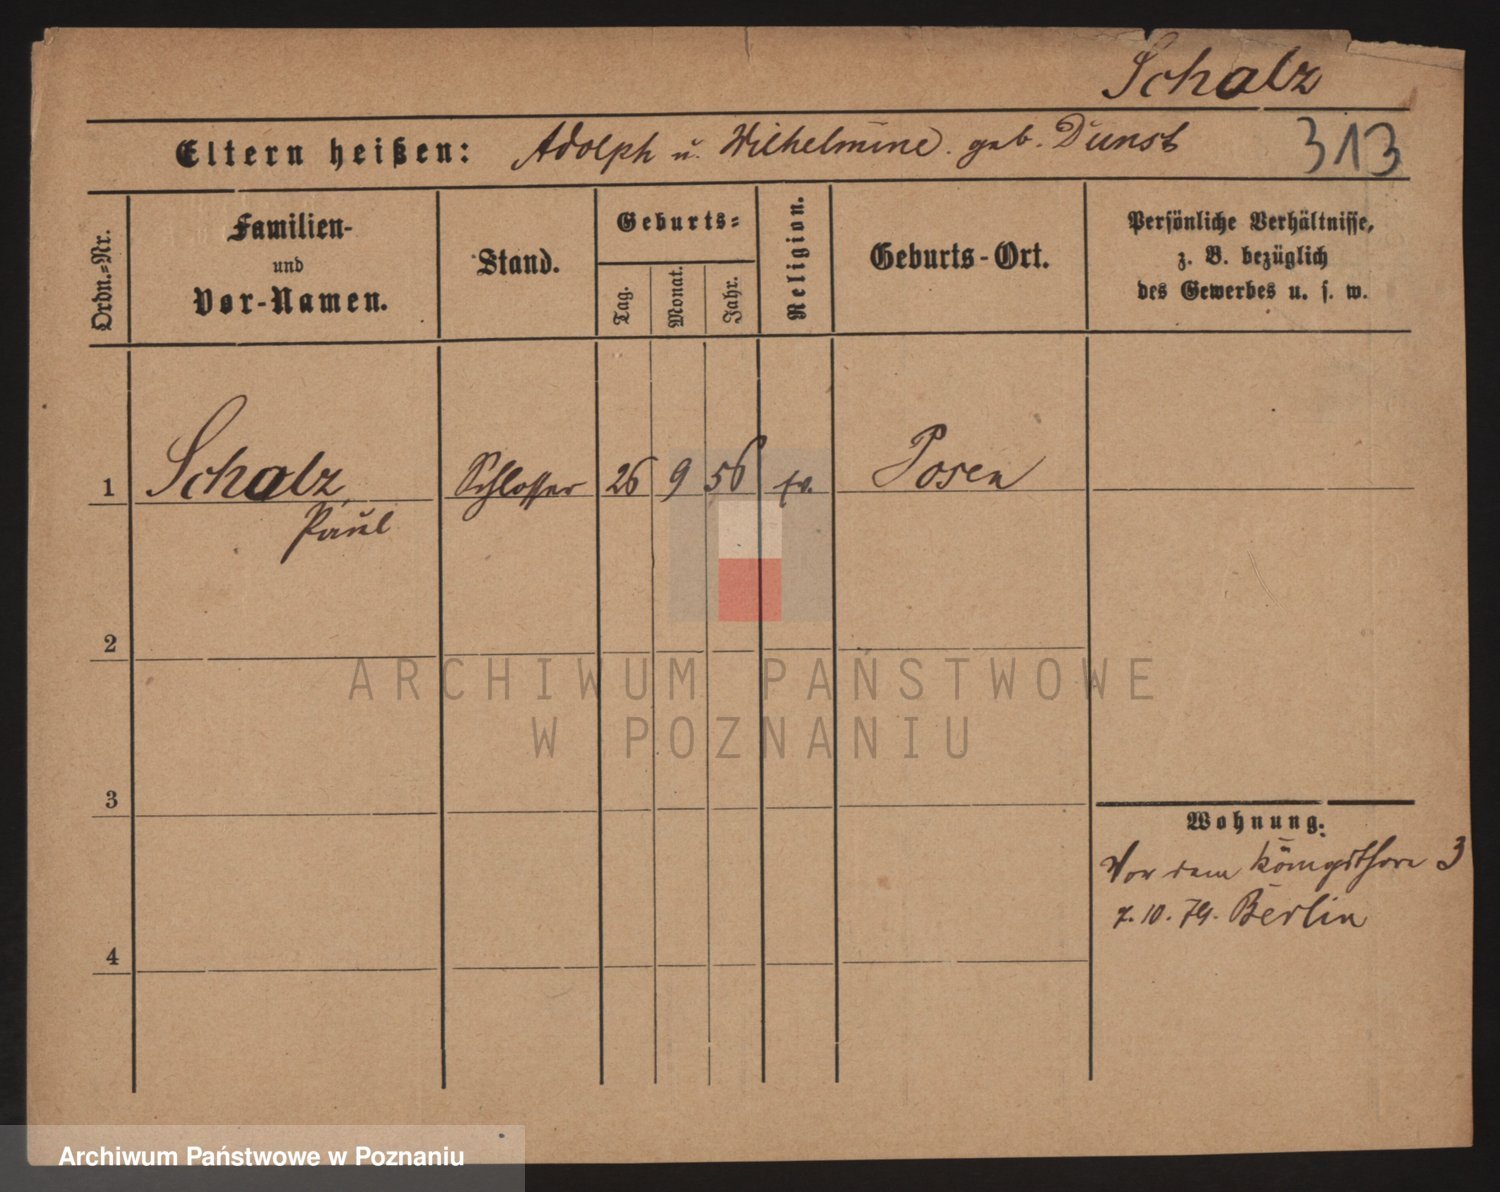 Schalz
Eltern heißen: Adolph u. Wilhelmine. geb. Dunst 313
Ordn.=Nr.
Familien-
und
Vor-Namen.
Stand.
Geburts=
Tag. Monat. Jahr.
Religion.
Geburts-Ort.
Persönliche Verhältnisse,
z. B. bezüglich
des Gewerbes u. s. w.
1 Schalz, Schlosser 26 9 56 ev. Posen
Paul
2
3
4
Wohnung.
Vor dem Königsthore 3
10. Berlin
ARCHIWUM PAŃSTWOWE
W POZNANIU
Archiwum Państwowe w Poznaniu